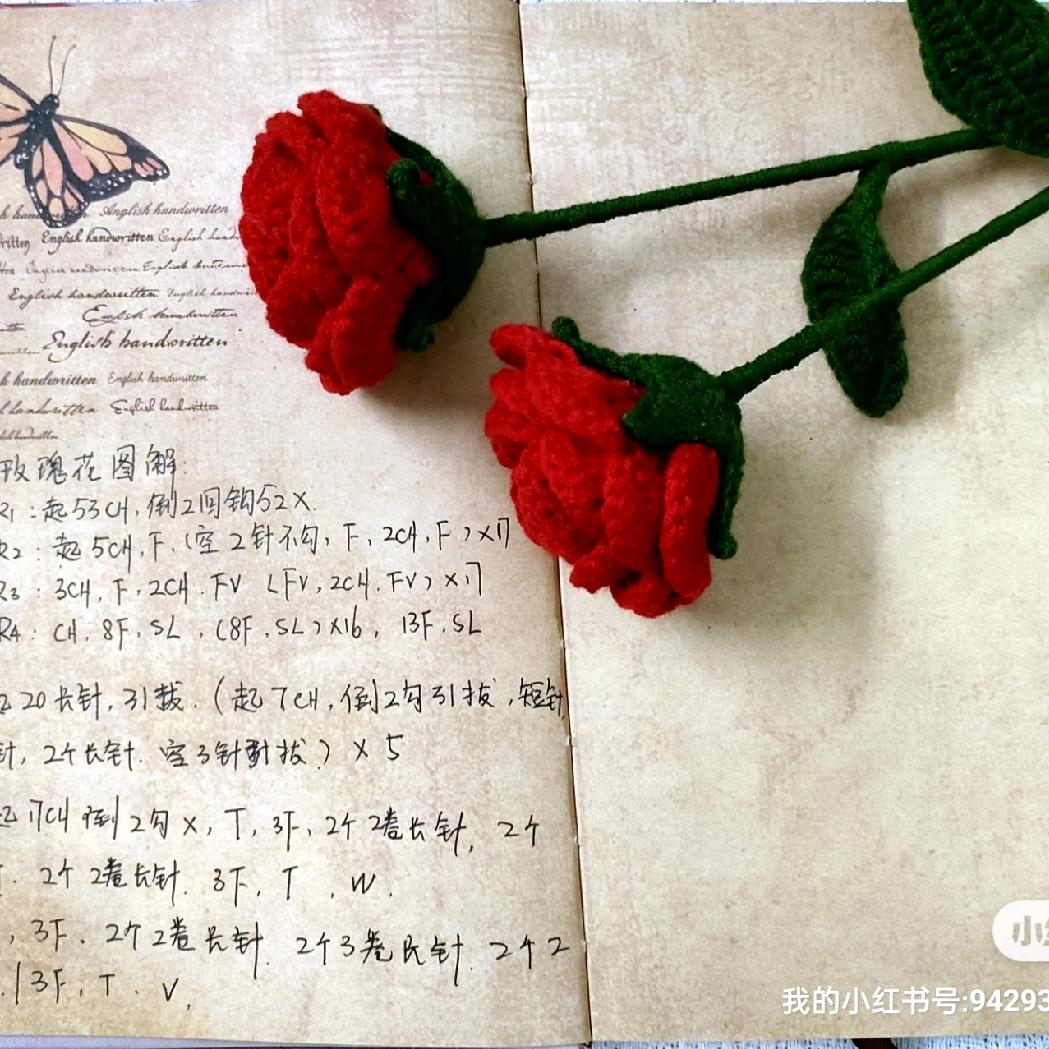 Anglish handwritten
English handwritten English hand
English handwritten English handwritten
English handwritten
English handwritten
handwritten English handwritten
handwritten English handwritten
玫瑰花图解:
R1:起53CH,倒2回钩52X.
R2:起5CH,F.(空2针不勾,F,2CH,F)×17
R3:3CH,F,2CH.FV(FV,2CH.FV)×17
R4:CH,8F,SL,(8F,SL)×16,13F,SL
20长针,引拔.(起7CH,倒2勾引拔,短针,
针,2个长针.空3针引拔)×5
起17CH倒2勾X,T,3F,2个2卷长针,2个
2个2卷长针.3F,T,W.
,3F.2个2卷长针.2个3卷长针.2个2
3F,T.V,
我的小红书号:94293